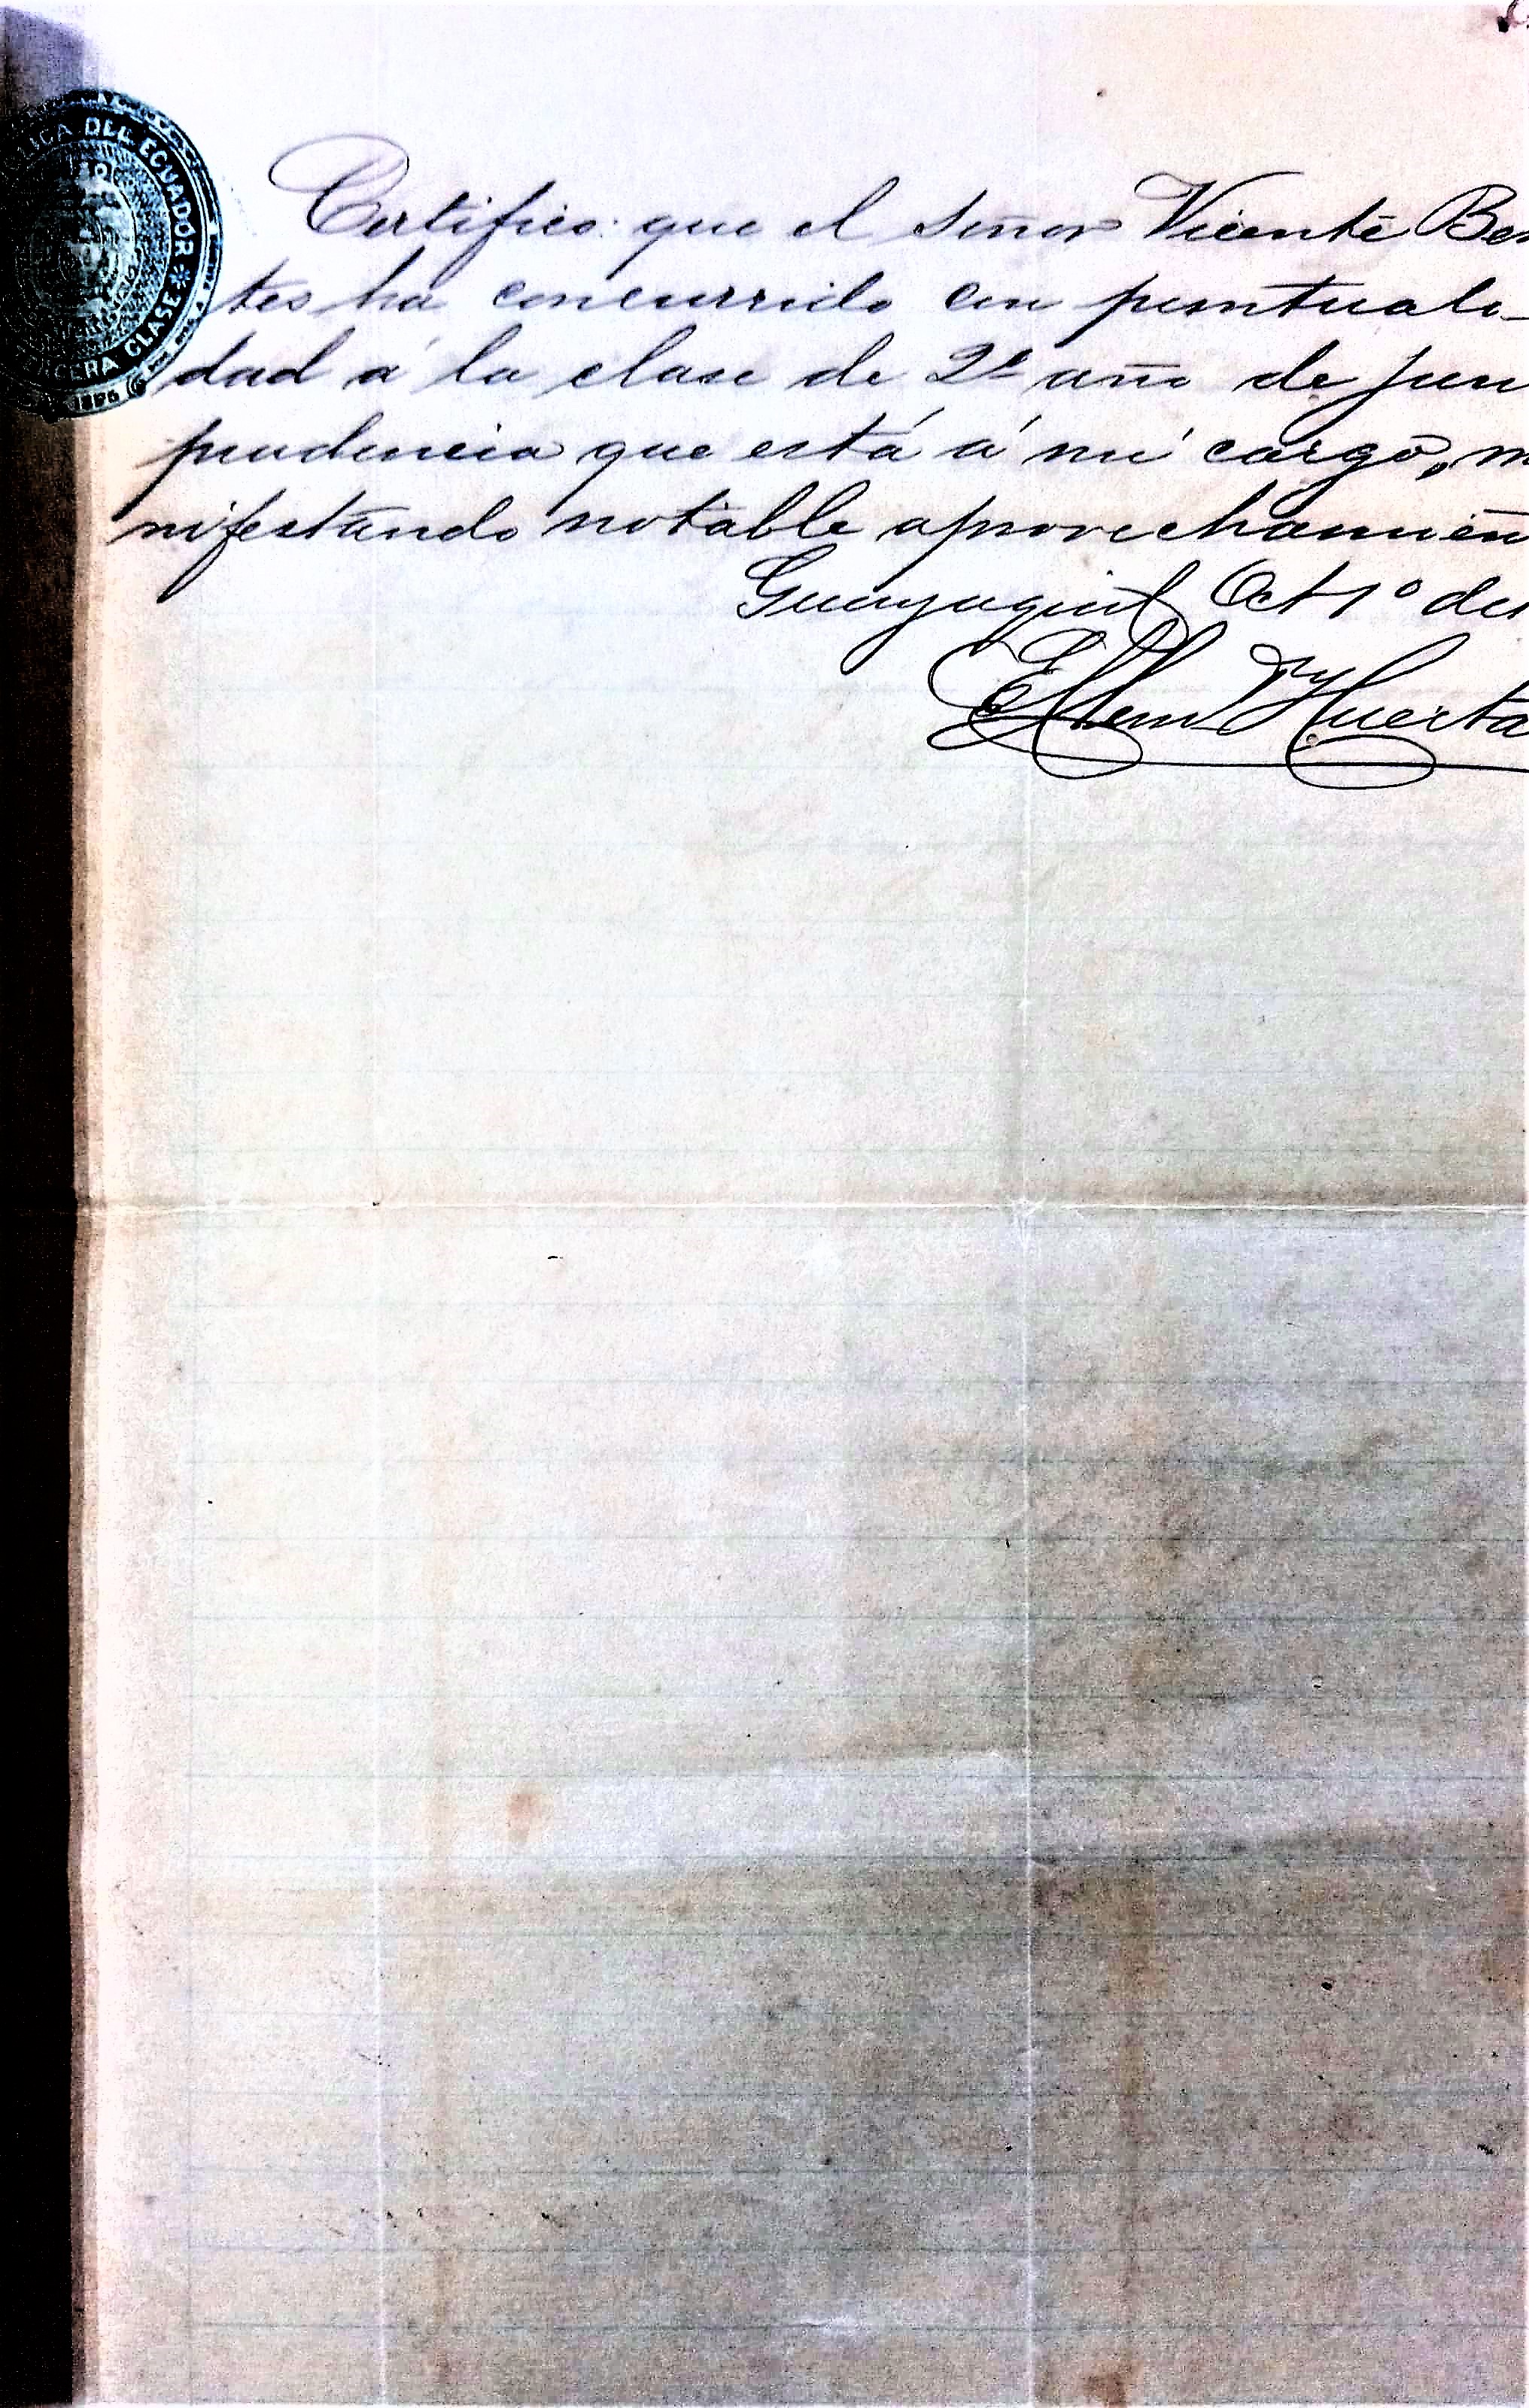 BLICA DEL ECUADOR * TERCERA CLASE
Certifico: que el Señor Vicente Ben
tes ha concurrido con puntuali-
dad á la clase de 2º año de Juris
prudencia que está á mi cargo, ma
nifestando notable aprovechamien
Guayaquil Oct 1º de 1
Huerta